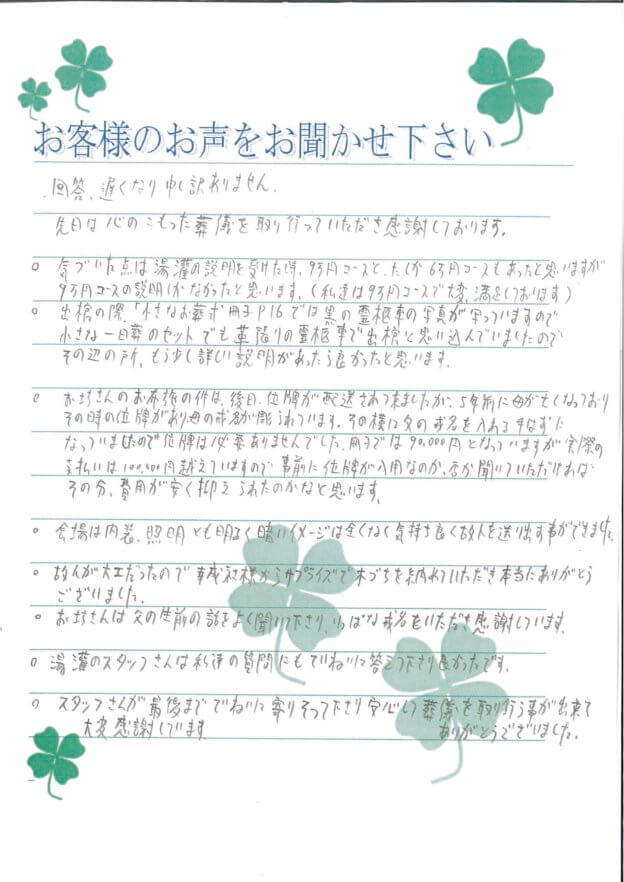 お客様のお声をお聞かせ下さい
回答、遅くなり申し訳ありません。
先日は心のこもった葬儀を取り行っていただき感謝しております。
○ 気づいた点は湯灌の説明を受けた時、9万円コースと、たしか6万円コースもあったと思いますが
9万円コースの説明しかなかったと思います。(私達は9万円コースで大変、満足しております)
○ 出棺の際、「小さなお葬式」冊子P16では黒の霊柩車の写真が写っていますので
小さな一日葬のセットでも黒塗りの霊柩車で出棺と思い込んでいましたので
その辺の所、もう少し詳しい説明があったら良かったと思います。
○ お坊さんのお布施の件は、後日、位牌が配送されて来ましたが、5年前に母が亡くなっており
その時の位牌があり母の戒名が彫られています。その横に父の戒名を入れる手はずに
なっていましたので位牌は必要ありませんでした。冊子では90,000円となっていますが実際の
支払いは100,000円越えていますので事前に位牌が入用なのか、否か聞いていただければ
その分、費用が安く抑えられたのかなと思います。
○ 会場は内装、照明とも明るく暗いイメージは全くなく気持ち良く故人を送り出す事ができました。
○ 故人が大工だったので 社様からサプライズで木づちを納れていただき本当にありがとう
ございました。
○ お坊さんは父の生前の話をよく聞いて下さり、りっぱな戒名をいただき感謝しています。
○ 湯灌のスタッフさんは私達の質問にもていねいに答えて下さり良かったです。
○ スタッフさんが最後までていねいに寄りそって下さり安心して葬儀を取り行う事が出来て
大変感謝しています。 ありがとうございました。